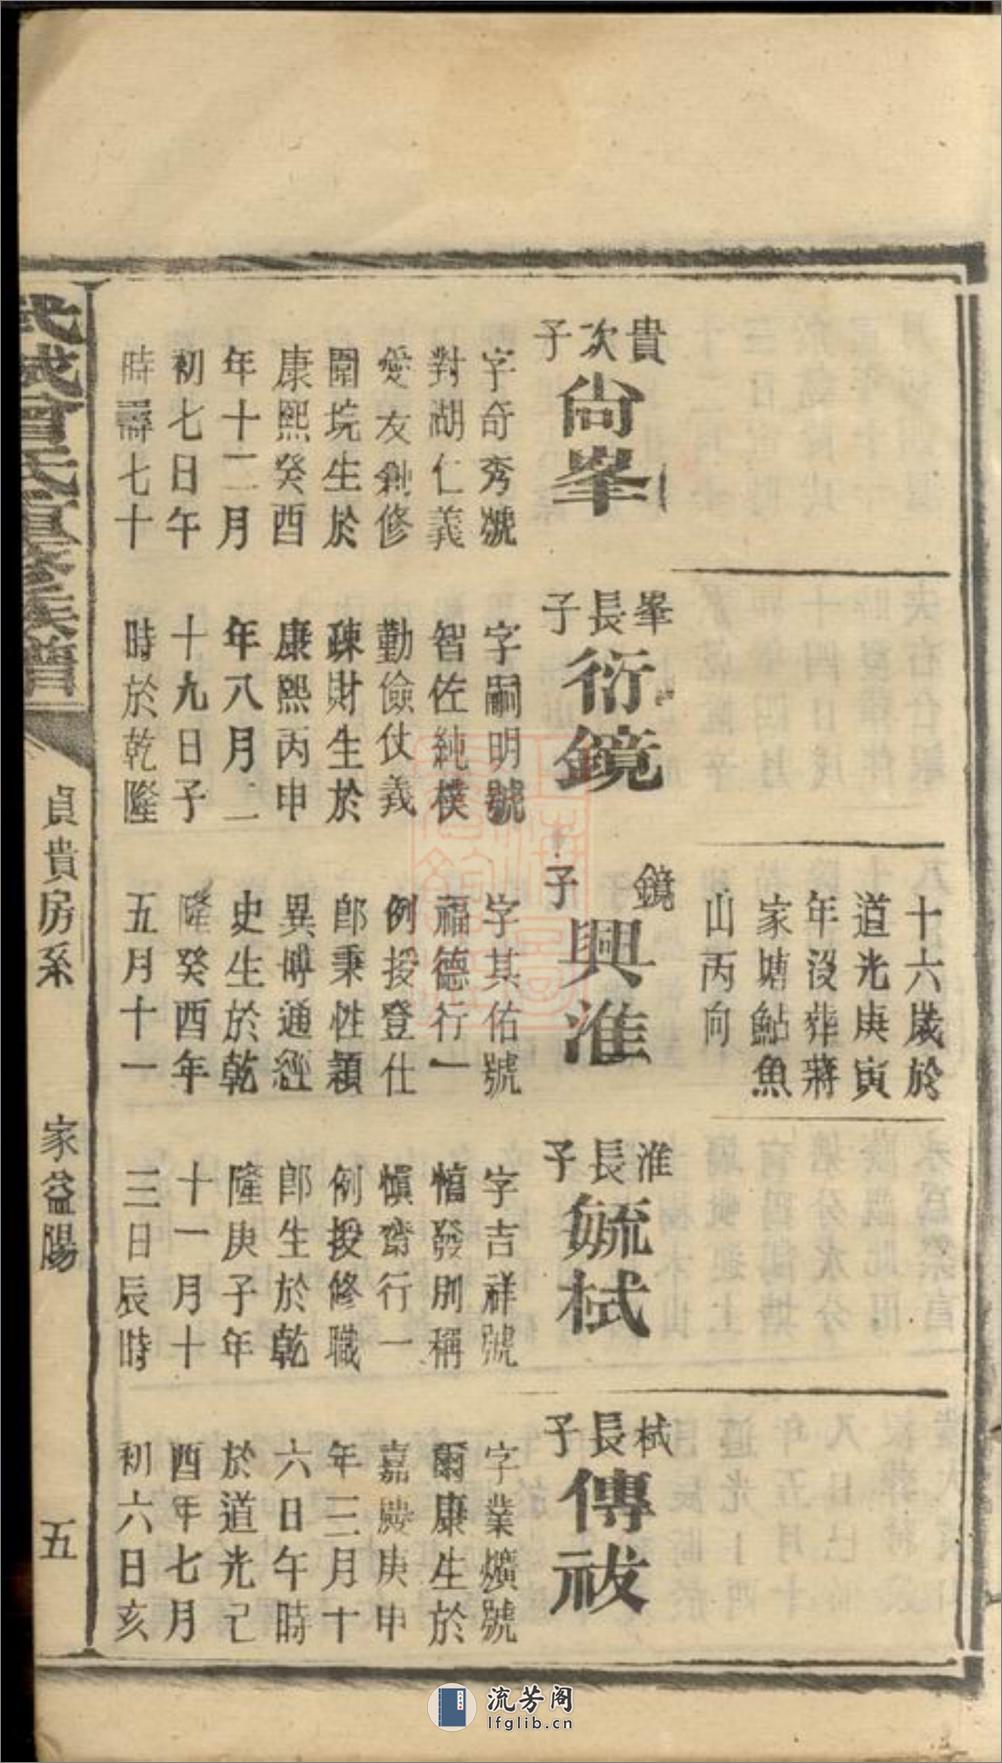 貴次子
尙峯
字奇秀號
對湖仁義
愛友創修
圍垸生於
康熙癸酉
年十二月
初七日午
時壽七十
峯長子
衍鏡
字嗣明號
智佐純樸
勤儉仗義
疎財生於
康熙丙申
年八月二
十九日子
時於乾隆
十六歲於
道光庚寅
年沒葬蔣
家塘鮎魚
山丙向
鏡子
興淮
字其佑號
福德行一
例授登仕
郎秉性穎
異博通經
史生於乾
隆癸酉年
五月十一
淮長子
毓栻
字吉祥號
愭發別稱
慎齋行一
例授修職
郎生於乾
隆庚子年
十一月十
三日辰時
栻長子
傳祓
字業爌號
爾康生於
嘉慶庚申
年三月十
六日午時
於道光己
酉年七月
初六日亥
武城曾氏重修族譜
貞貴房系
家益陽
五
流芳阁
lfglib.cn